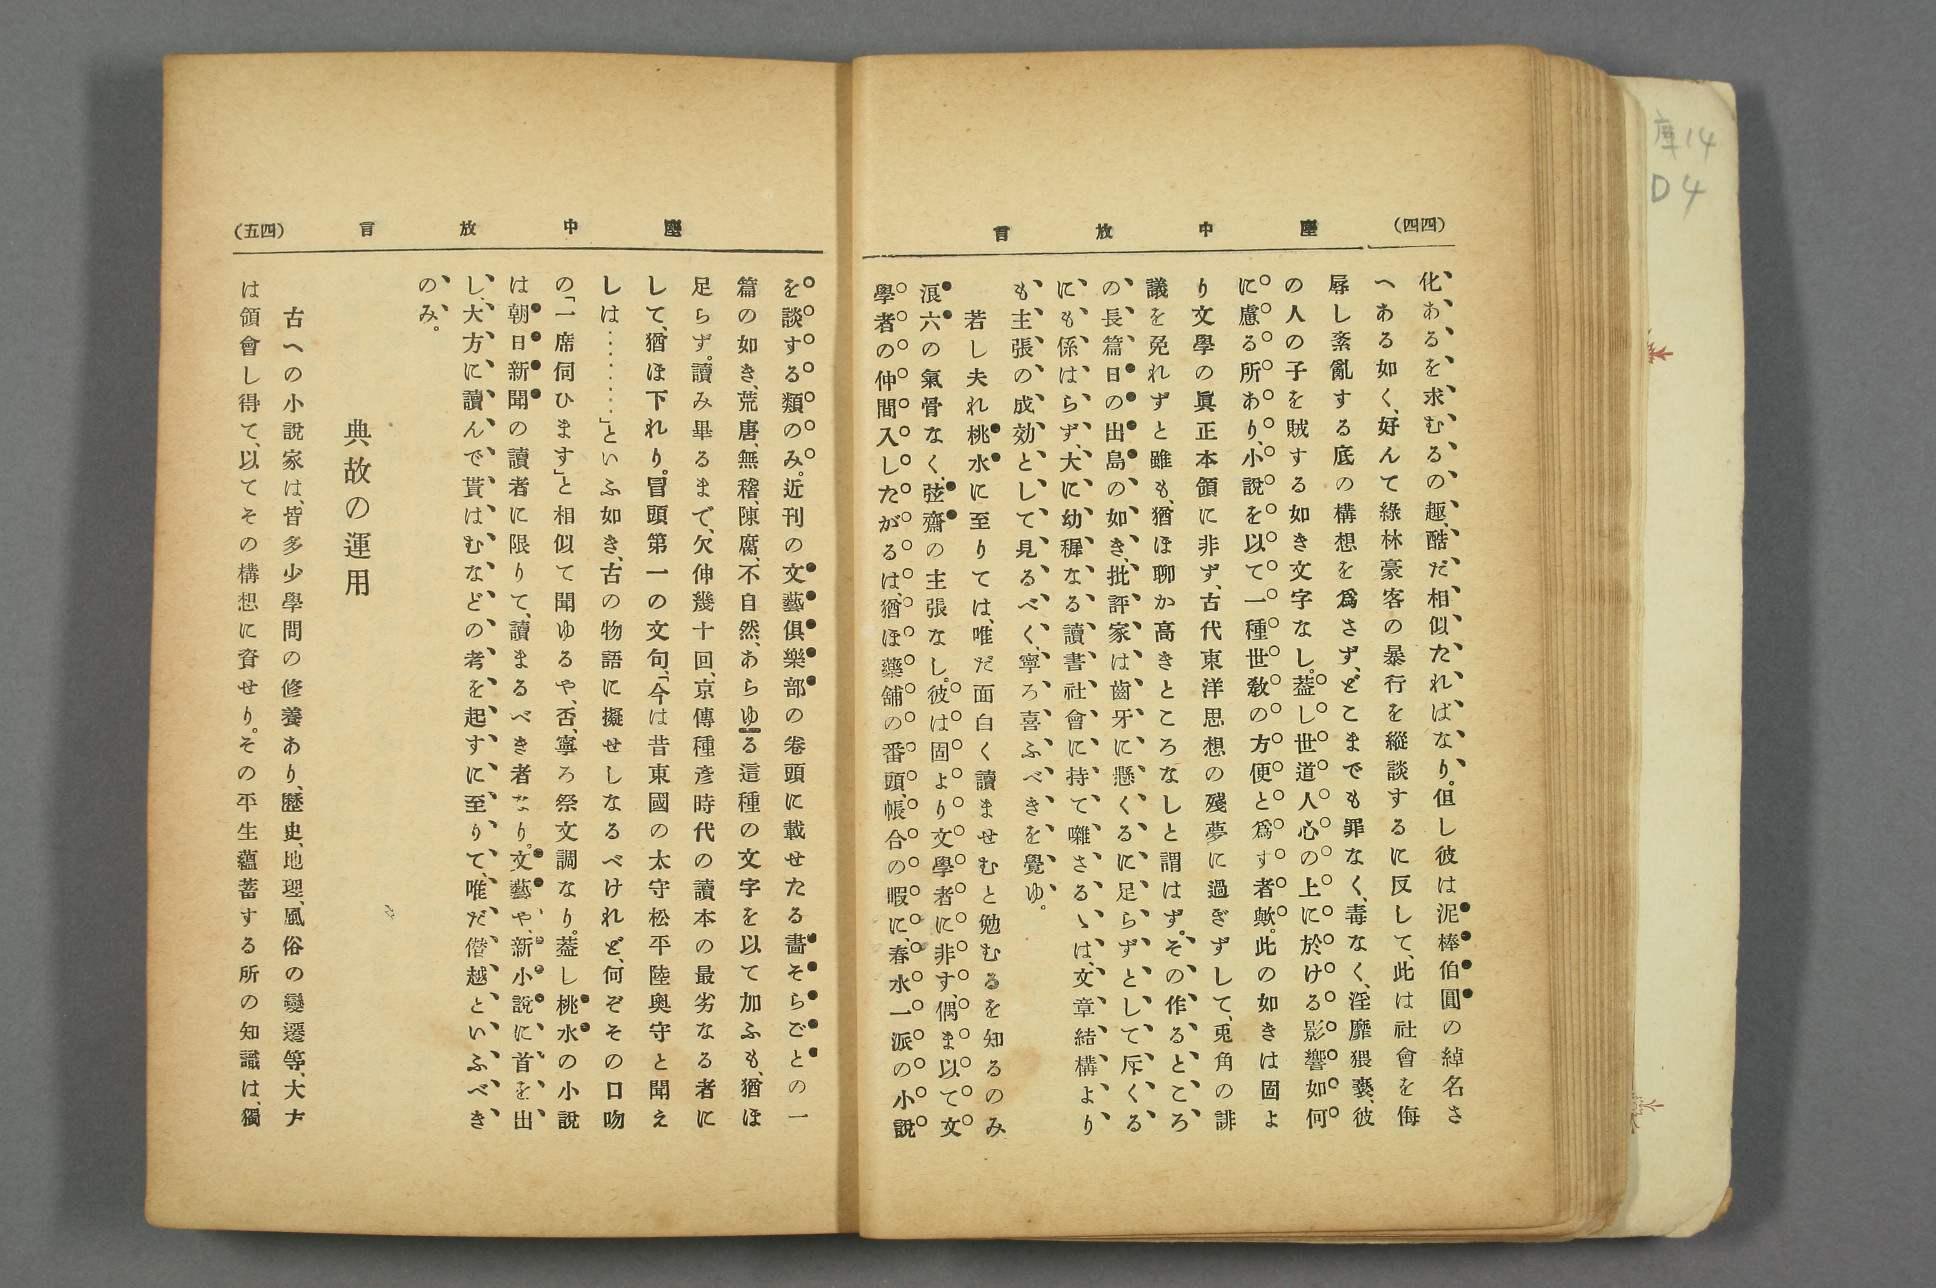 庫14
D4
（四四）
塵中放言
化あるを求むるの趣、酷だ相似たればなり。但し彼は泥棒伯圓の綽名さ
へある如く、好んで綠林豪客の暴行を縱談するに反して、此は社會を侮
辱し紊亂する底の構想を爲さず、どこまでも罪なく、毒なく、淫靡猥褻、彼
の人の子を賊する如き文字なし。葢し世道人心の上に於ける影響如何
に慮る所あり、小說を以て一種世敎の方便と爲す者歟。此の如きは固よ
り文學の眞正本領に非ず、古代東洋思想の殘夢に過ぎずして、兎角の誹
議を免れずと雖も、猶ほ聊か高きところなしと謂はず。その作るところ
の長篇日の出島の如き、批評家は齒牙に懸くるに足らずとして斥くる
にも係はらず、大に幼穉なる讀書社會に持て囃さるゝは、文章結構より
も主張の成効として見るべく、寧ろ喜ふべきを覺ゆ。
若し夫れ桃水に至りては、唯だ面白く讀ませむと勉むるを知るのみ
浪六の氣骨なく、弦齋の主張なし。彼は固より文學者に非す、偶ま以て文
學者の仲間入したがるは、猶ほ藥舖の番頭、帳合の暇に、春水一派の小說
（四五）
塵中放言
を談する類のみ。近刊の文藝俱樂部の卷頭に載せたる畵そらごとの一
篇の如き、荒唐、無稽、陳腐、不自然、あらゆる這種の文字を以て加ふも、猶ほ
足らず。讀み畢るまで、欠伸幾十回、京傳種彥時代の讀本の最劣なる者に
して、猶ほ下れり。冒頭第一の文句、「今は昔東國の太守松平陸奧守と聞え
しは‥‥‥‥」といふ如き、古の物語に擬せしなるべけれど、何ぞその口吻
の「一席伺ひます」と相似て聞ゆるや、否、寧ろ祭文調なり。葢し桃水の小說
は朝日新聞の讀者に限りて、讀まるべき者なり。文藝や、新小說に首を出
し、大方に讀んで貰はむなどの考を起すに至りて、唯だ僭越といふべき
のみ。
典故の運用
古への小說家は、皆多少學問の修養あり、歷史、地理、風俗の變遷等、大方
は領會し得て、以てその構想に資せり。その平生蘊蓄する所の知識は、獨